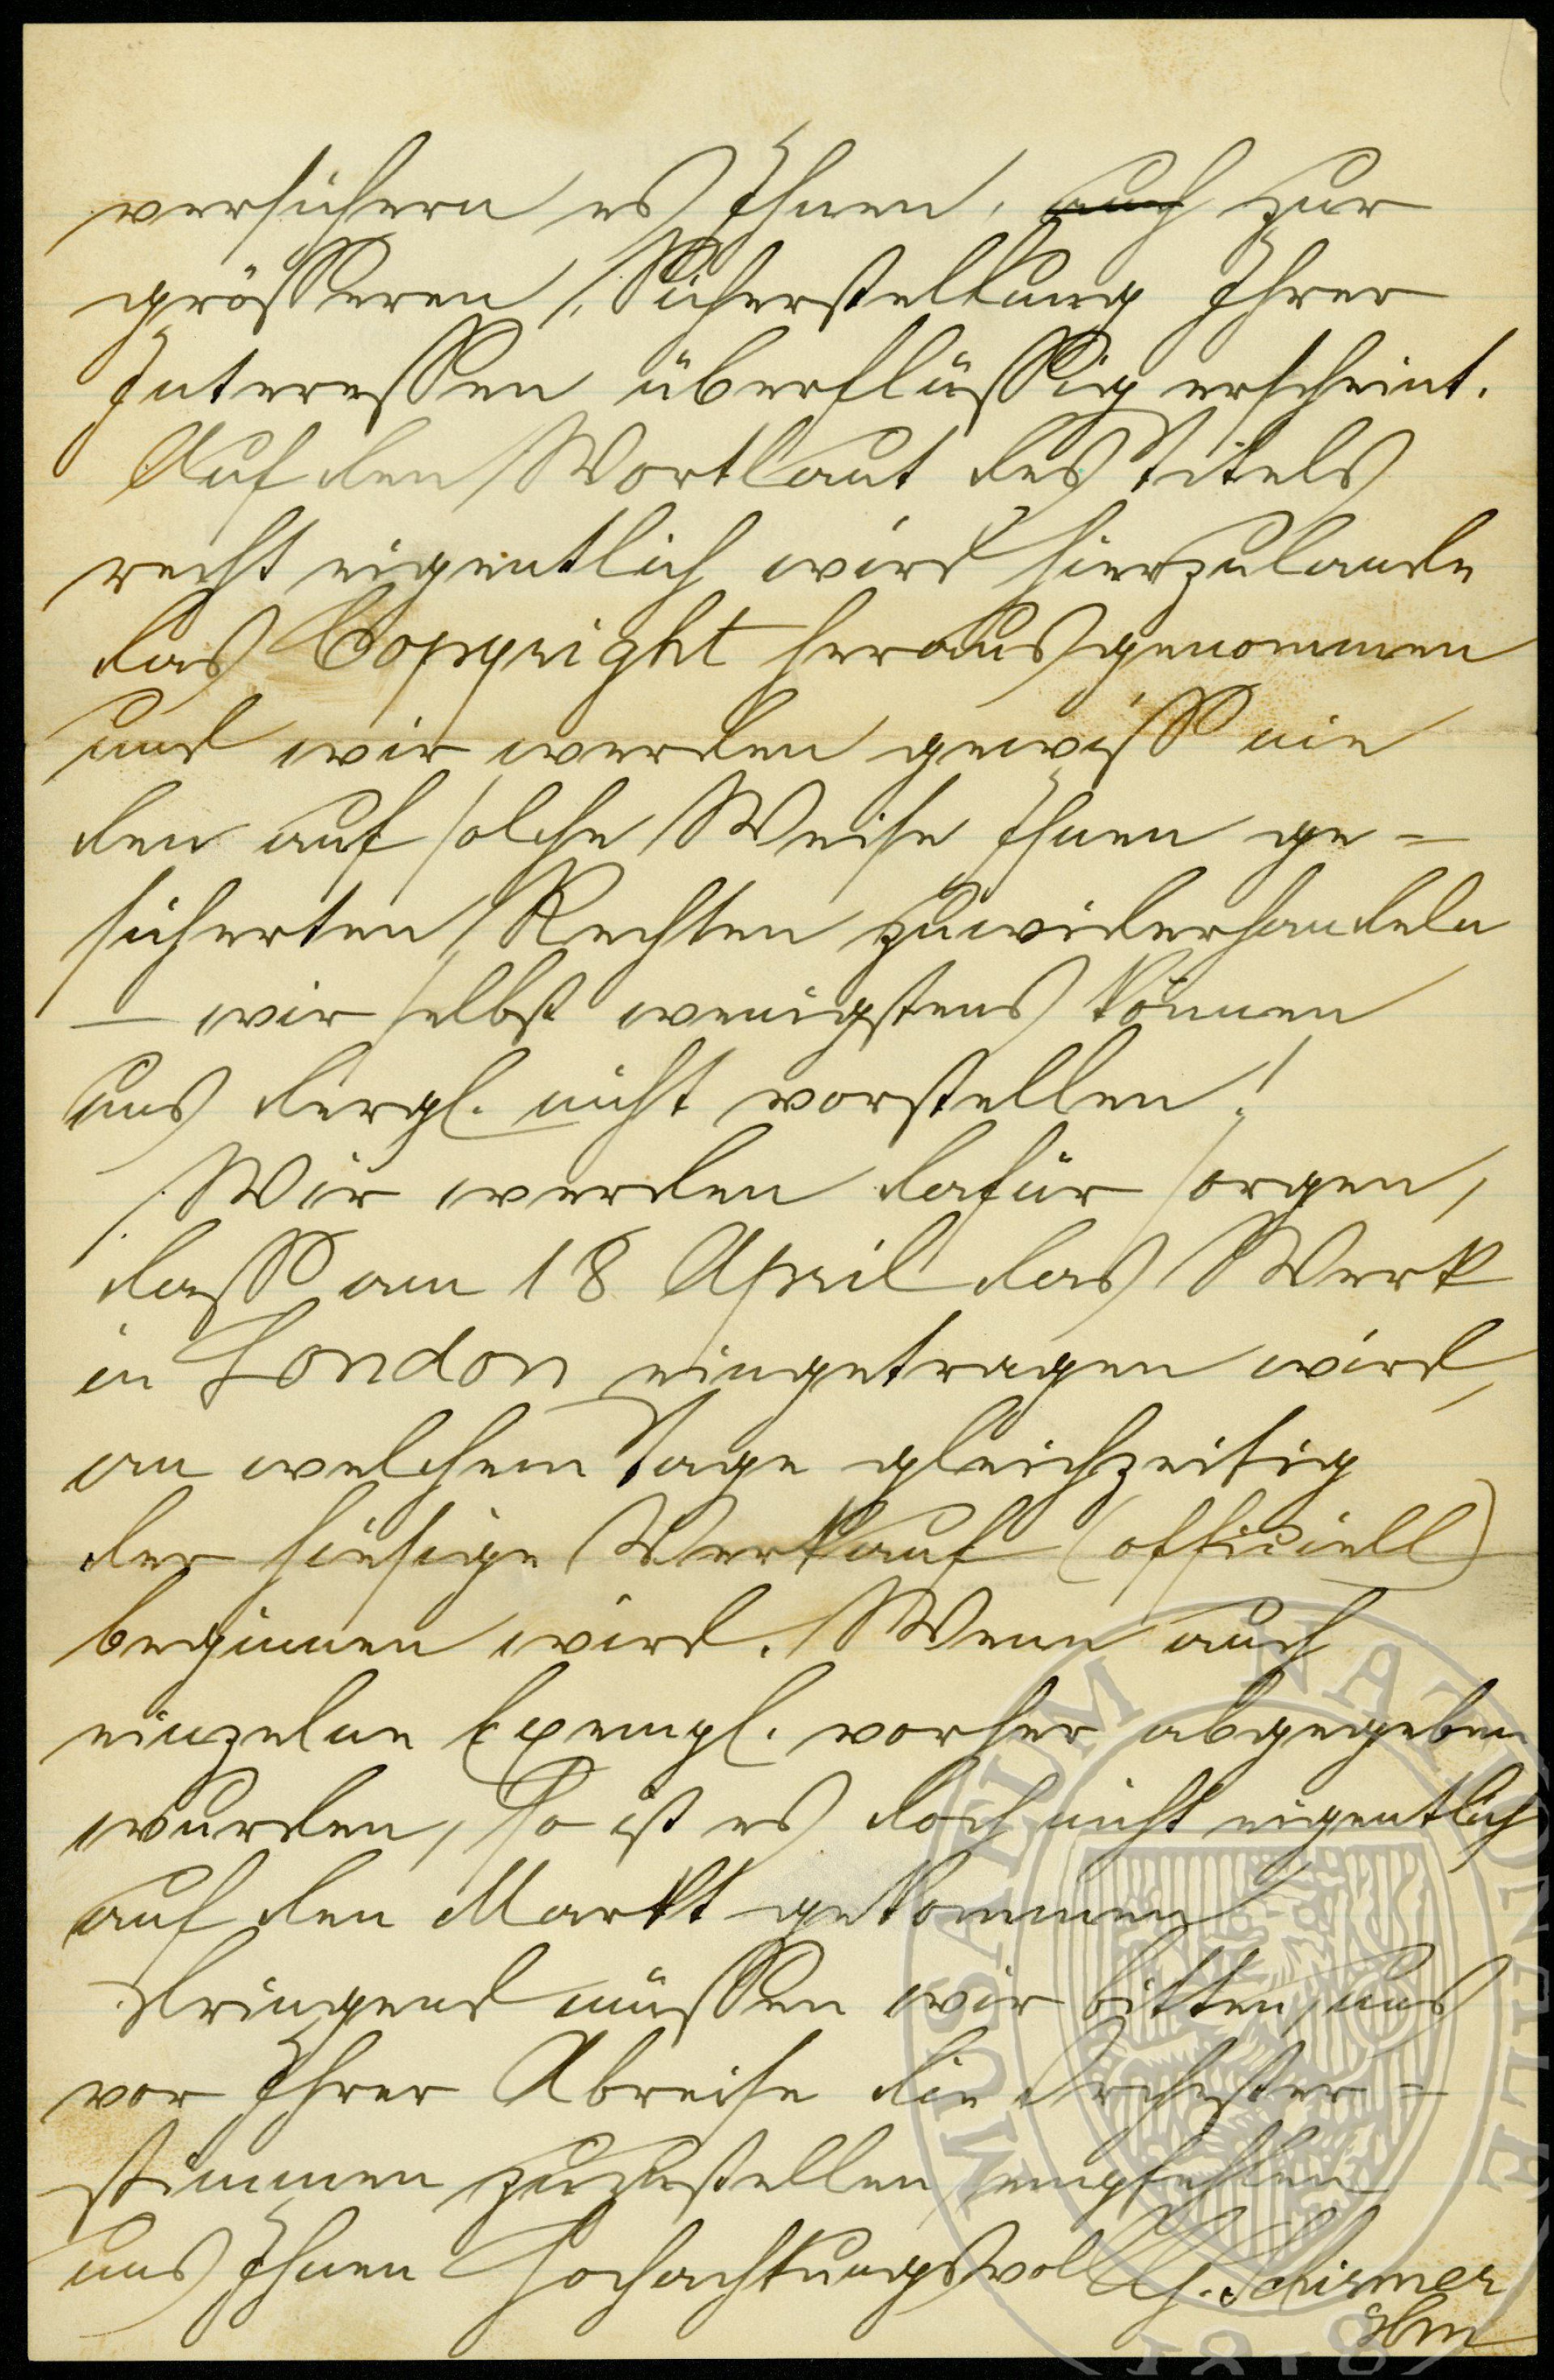 versichern es Ihnen, auch zur
grösseren Sicherstellung Ihrer
Interessen überflüssig erscheint.
Auf den Wortlaut des Titels
recht eigentlich wird hierzulande
das Copyright herausgenommen
und wir werden gewiss nie
den auf solche Weise Ihnen ge=
sicherten Rechten zuwiderhandeln
— wir selbst wenigstens können
uns dergl. nicht vorstellen!
Wir werden dafür sorgen,
dass am 18 April das Werk
in London eingetragen wird,
an welchem Tage gleichzeitig
der hiesige Verkauf (officiell)
beginnen wird. Wenn auch
einzelne Exempl. vorher abgegeben
wurden, so ist es doch nicht eigentlich
auf den Markt gekommen
Dringend müssen wir bitten, uns
vor Ihrer Abreise die Orchester=
stimmen zuzustellen, empfehlen
uns Ihnen Hochachtungsvoll G. Schirmer
MUSAEUM NATIONALE
1818